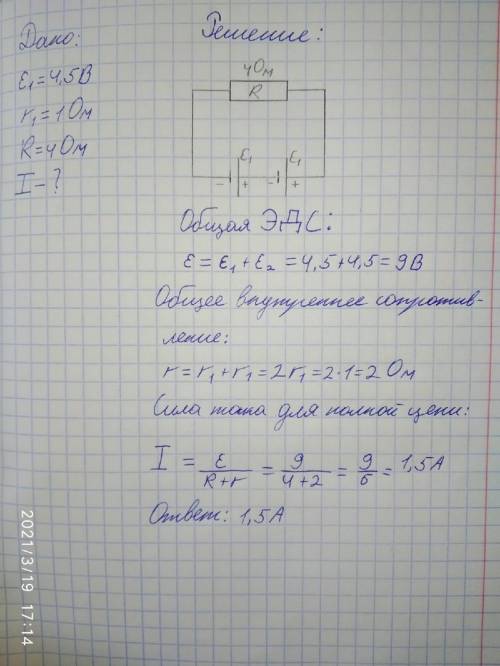 Дано:
ε1=4,5В
r1=1 Ом
R=4 Ом
I-?
Решение:
4 Ом
R
ε1 ε1
- + - +
Общая ЭДС:
ε = ε1 + ε2 = 4,5+4,5=9В
Общее внутреннее сопротив-
ление:
r = r1 + r1 = 2r1 = 2·1 = 2 Ом
Сила тока для полной цепи:
I = ε/R+r = 9/4+2 = 9/6 = 1,5А
Ответ: 1,5А
2021/3/19 17:14